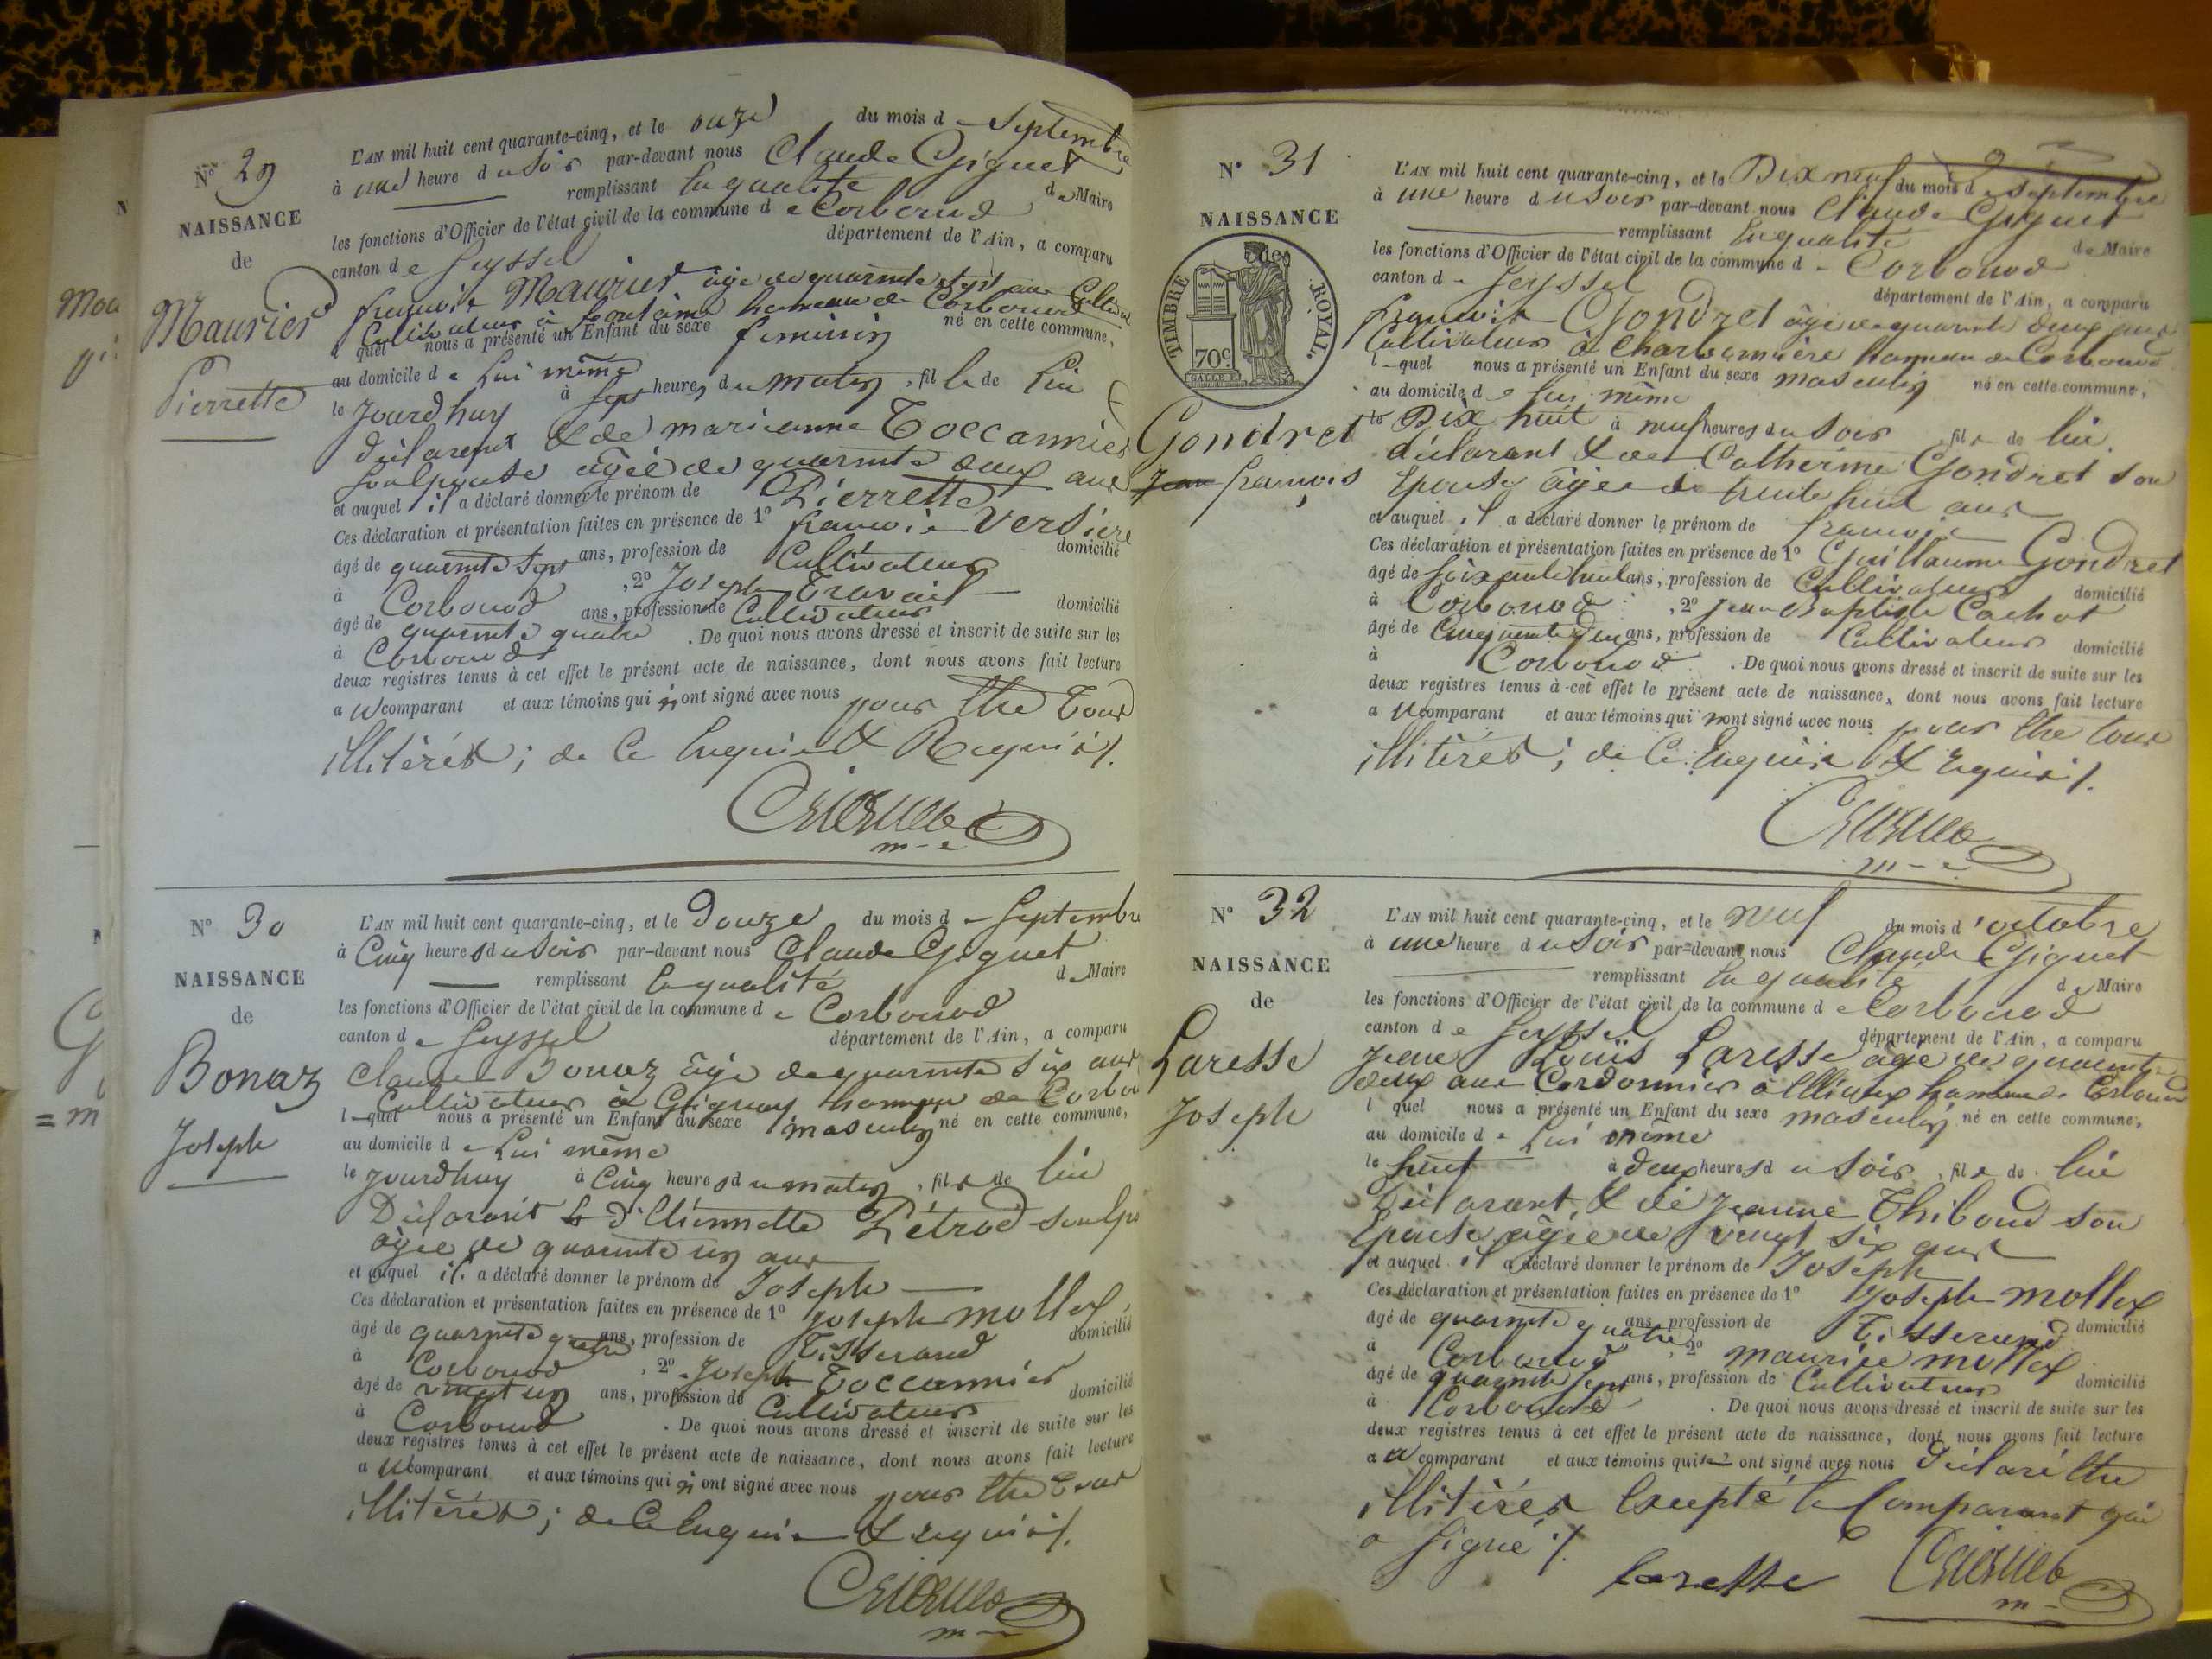 N° 29
NAISSANCE
de
Maurier
Pierrette
L'AN mil huit cent quarante-cinq, et le onze du mois de Septembre
à une heure du Soir par-devant nous Claude Giguet
remplissant en qualité de Maire
les fonctions d'Officier de l'état civil de la commune de Corbonod
canton de Seyssel département de l'Ain, a comparu
françois Maurier âgé de quarante sept ans
Cultivateur à hameau de Corbonod
quel nous a présenté un Enfant du sexe feminin né en cette commune,
au domicile de Lui même
le jourdhuy à Sept heures du matin, fille de Lui
déclarant & de marianne Toccannier
son épouse âgée de quarante deux ans
et auquel il a déclaré donner le prénom de Pierrette
Ces déclaration et présentation faites en présence de 1° françois
âgé de quarante Sept ans, profession de Cultivateur domicilié
à Corbonod, 2° Joseph Travail
âgé de quarante quatre ans, profession de Cultivateur domicilié
à Corbonod. De quoi nous avons dressé et inscrit de suite sur les
deux registres tenus à cet effet le présent acte de naissance, dont nous avons fait lecture
a comparant et aux témoins qui n'ont signé avec nous pour être tous
illitérés; de ce Enquis & Requis/.
m-e
N° 30
NAISSANCE
de
Bonaz
Joseph
L'AN mil huit cent quarante-cinq, et le Douze du mois de Septembre
à Cinq heures du Soir par-devant nous Claude Giguet
remplissant en qualité de Maire
les fonctions d'Officier de l'état civil de la commune de Corbonod
canton de Seyssel département de l'Ain, a comparu
Claude Bonaz âgé de quarante six ans
Cultivateur à Gignay hameau de Corbo
l-quel nous a présenté un Enfant du sexe masculin né en cette commune,
au domicile de Lui même
le jourdhuy à Cinq heures du matin, fils de lui
Déclarant & d'Etiennette Pétrod
âgée de quarante un ans
et auquel il a déclaré donner le prénom de Joseph
Ces déclaration et présentation faites en présence de 1° joseph mollex
âgé de quarante quatre ans, profession de Tisserand domicilié
à Corbonod, 2° Joseph Toccannier
âgé de vingt un ans, profession de Cultivateur domicilié
à Corbonod. De quoi nous avons dressé et inscrit de suite sur les
deux registres tenus à cet effet le présent acte de naissance, dont nous avons fait lecture
a comparant et aux témoins qui n'ont signé avec nous pour être tous
illitérés; de Ce Enquis & requis/.
m-e
N° 31
NAISSANCE
de
TIMBRE ROYAL.
70c
Gondret
françois
L'AN mil huit cent quarante-cinq, et le Dix neuf du mois de septembre
à une heure du Soir par-devant nous Claude Giguet
remplissant en qualité de Maire
les fonctions d'Officier de l'état civil de la commune de Corbonod
canton de Seyssel département de l'Ain, a comparu
françois Gondret âgé de quarante deux ans
Cultivateur à Charbonnière hameau de Corbonod
l-quel nous a présenté un Enfant du sexe masculin né en cette commune,
au domicile de lui même
le Dix huit à neuf heures du Soir, fils de lui
déclarant & de Catherine Gondret son
Epouse âgée de trente huit ans
et auquel il a déclaré donner le prénom de françois
Ces déclaration et présentation faites en présence de 1° Guillaume Gondret
âgé de soixante huit ans, profession de Cultivateur domicilié
à Corbonod, 2° jean Baptiste Cochot
âgé de ans, profession de Cultivateur domicilié
à Corbonod. De quoi nous avons dressé et inscrit de suite sur les
deux registres tenus à cet effet le présent acte de naissance, dont nous avons fait lecture
a comparant et aux témoins qui n'ont signé avec nous pour être tous
illitérés; de Ce Enquis & requis/.
m-e
N° 32
NAISSANCE
de
Laresse
Joseph
L'AN mil huit cent quarante-cinq, et le neuf du mois d'octobre
à une heure du Soir par-devant nous Claude Giguet
remplissant en qualité de Maire
les fonctions d'Officier de l'état civil de la commune de Corbonod
canton de Seyssel département de l'Ain, a comparu
Louis Laresse âgé de quarante
deux ans Cordonnier à hameau de Corbonod
l quel nous a présenté un Enfant du sexe masculin né en cette commune,
au domicile de Lui même
le huit à deux heures du Soir, fils de lui
Déclarant, & de jeanne Thiboud son
Epouse âgée de vingt six ans
et auquel il a déclaré donner le prénom de Joseph
Ces déclaration et présentation faites en présence de 1° joseph mollex
âgé de quarante quatre ans, profession de Tisserand domicilié
à Corbonod, 2° maurice mollex
âgé de quarante sept ans, profession de Cultivateur domicilié
à Corbonod. De quoi nous avons dressé et inscrit de suite sur les
deux registres tenus à cet effet le présent acte de naissance, dont nous avons fait lecture
a comparant et aux témoins qui ont signé avec nous Déclaré être
illitérés Excepté le Comparant qui
a signé/.
laresse
m-